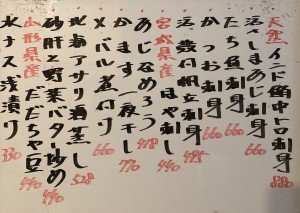 天然インド鮪中トロ刺身 880
活〆まあじ刺身 660
たち魚刺身 660
かつお刺身 660
活帆立刺し 495
宮城県産ほや刺し 440
あじなめろう 418
かます一夜干し 770
メバル煮付け 660
アサリ酒蒸し 528
砂肝と野菜バター炒め 440
山形県産だだちゃ豆 440
水ナス浅漬け 330